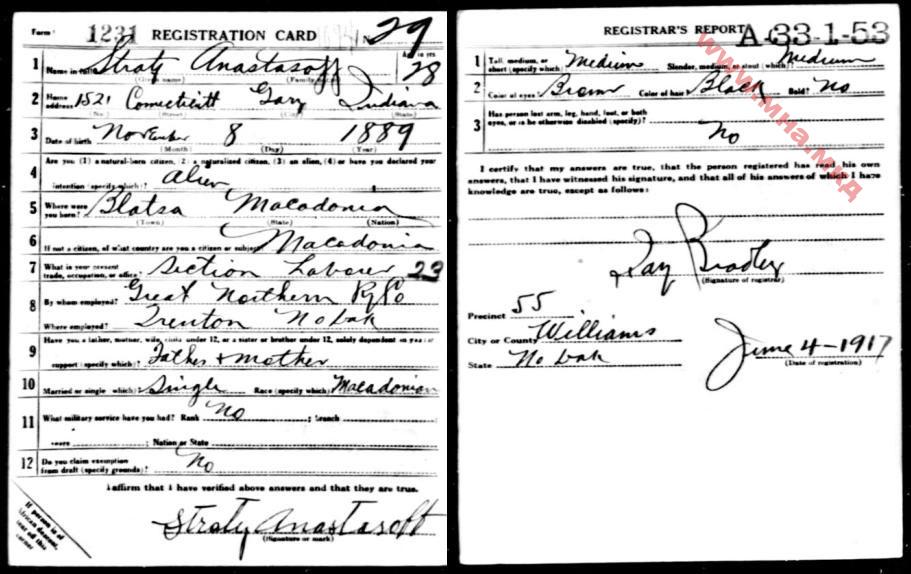 Form 1231 REGISTRATION CARD No. 29
1 Name in full Straty Anastasoff 28
(Given name) (Family name) Age in yrs.
2 Home address 1521 Conneticitt Gary Indiana
(No.) (Street) (City) (State)
3 Date of birth November 8 1889
(Month) (Day) (Year)
4 Are you (1) a natural-born citizen, (2) a naturalized citizen, (3) an alien, (4) or have you declared your
intention (specify which)? Alien
5 Where were you born? Blatsa Macadonia
(Town) (State) (Nation)
6 If not a citizen, of what country are you a citizen or subject? Macadonia
7 What is your present trade, occupation, or office? Section Laborer 23
8 By whom employed? Great Northern Ry Co
Where employed? Trenton No Dak
9 Have you a father, mother, wife, child under 12, or a sister or brother under 12, solely dependent on you for
support (specify which)? Father + mother
10 Married or single (which)? Single Race (specify which)? Macadonian
11 What military service have you had? Rank No ; branch
years ; Nation or State
12 Do you claim exemption from draft (specify grounds)? No
I affirm that I have verified above answers and that they are true.
Straty Anastasoff
(Signature or mark)
If person is of
African descent,
tear off this
corner
REGISTRAR'S REPORT A-33-1-53
1 Tall, medium, or short (specify which)? Medium Slender, medium, or stout (which)? Medium
2 Color of eyes? Brown Color of hair? Black Bald? No
3 Has person lost arm, leg, hand, foot, or both
eyes, or is he otherwise disabled (specify)?
No
I certify that my answers are true, that the person registered has read his own
answers, that I have witnessed his signature, and that all of his answers of which I have
knowledge are true, except as follows:
Ray Bradley
(Signature of registrar)
Precinct 55
City or County Williams
State No Dak
June 4-1917
(Date of registration)
www.мна.мкд